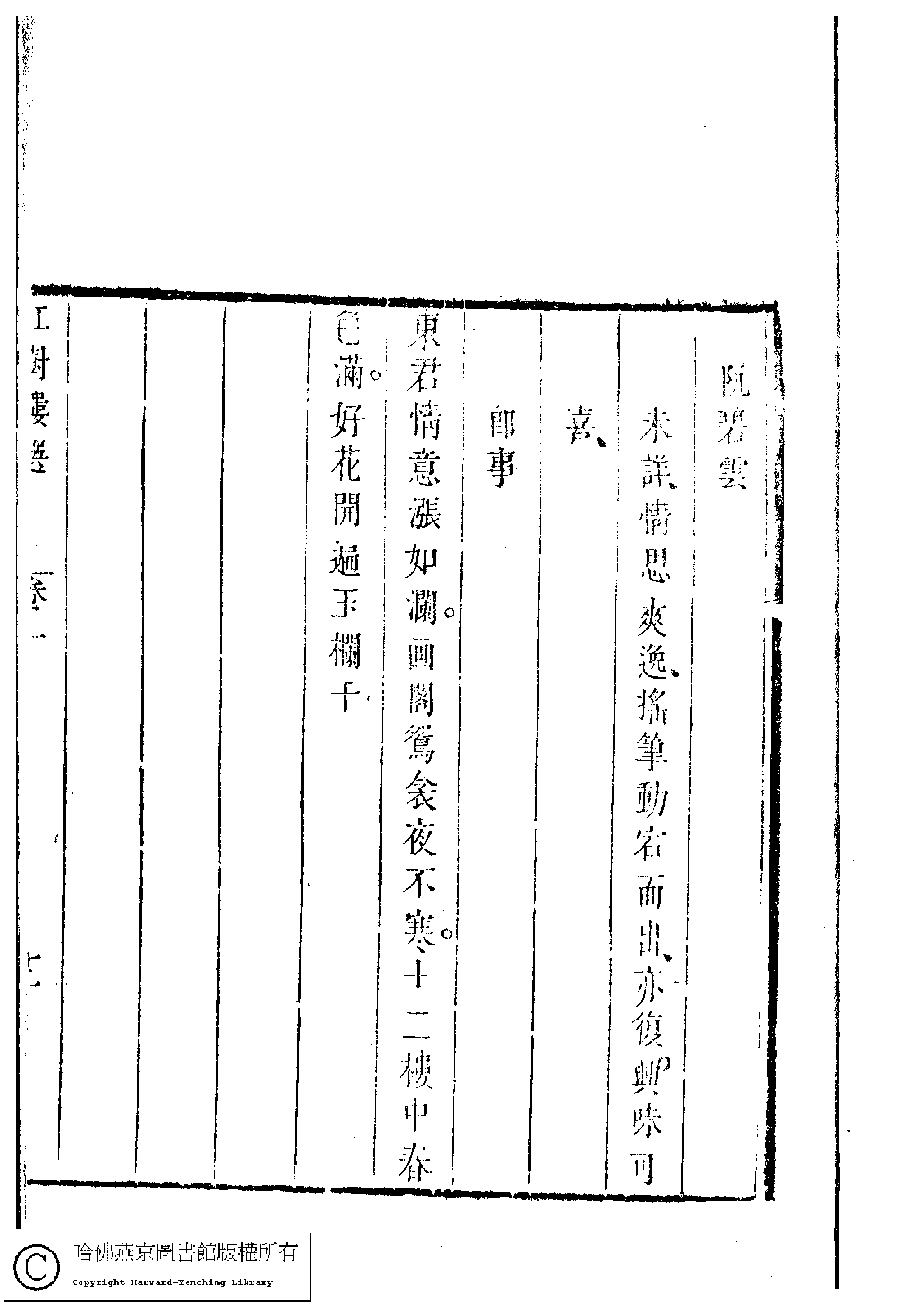 阮碧雲
未詳、情思爽逸、搖筆動宕而出、亦復興味可
喜、
即事
東君情意漲如瀾。画閣鴛衾夜不寒。十二樓中春
色滿。好花開遍玉欄干
紅樹樓選
卷十一
哈佛燕京圖書館版權所有
Copyright Harvard-Yenching Library